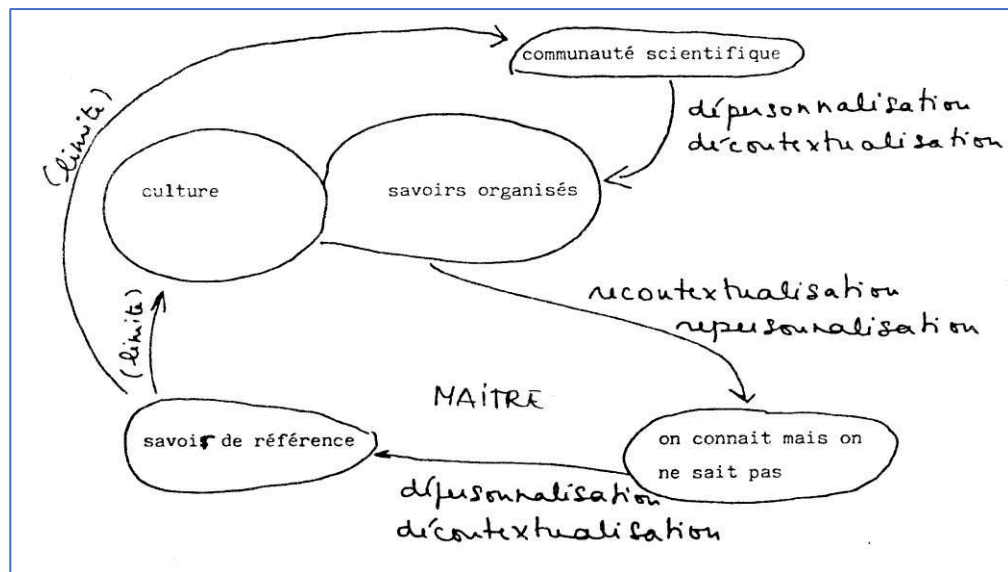 communauté scientifique
dépersonnalisation
décontextualisation
(limite)
culture
savoirs organisés
recontextualisation
repersonnalisation
(limite)
MAITRE
savoir de référence
on connait mais on
ne sait pas
dépersonnalisation
décontextualisation